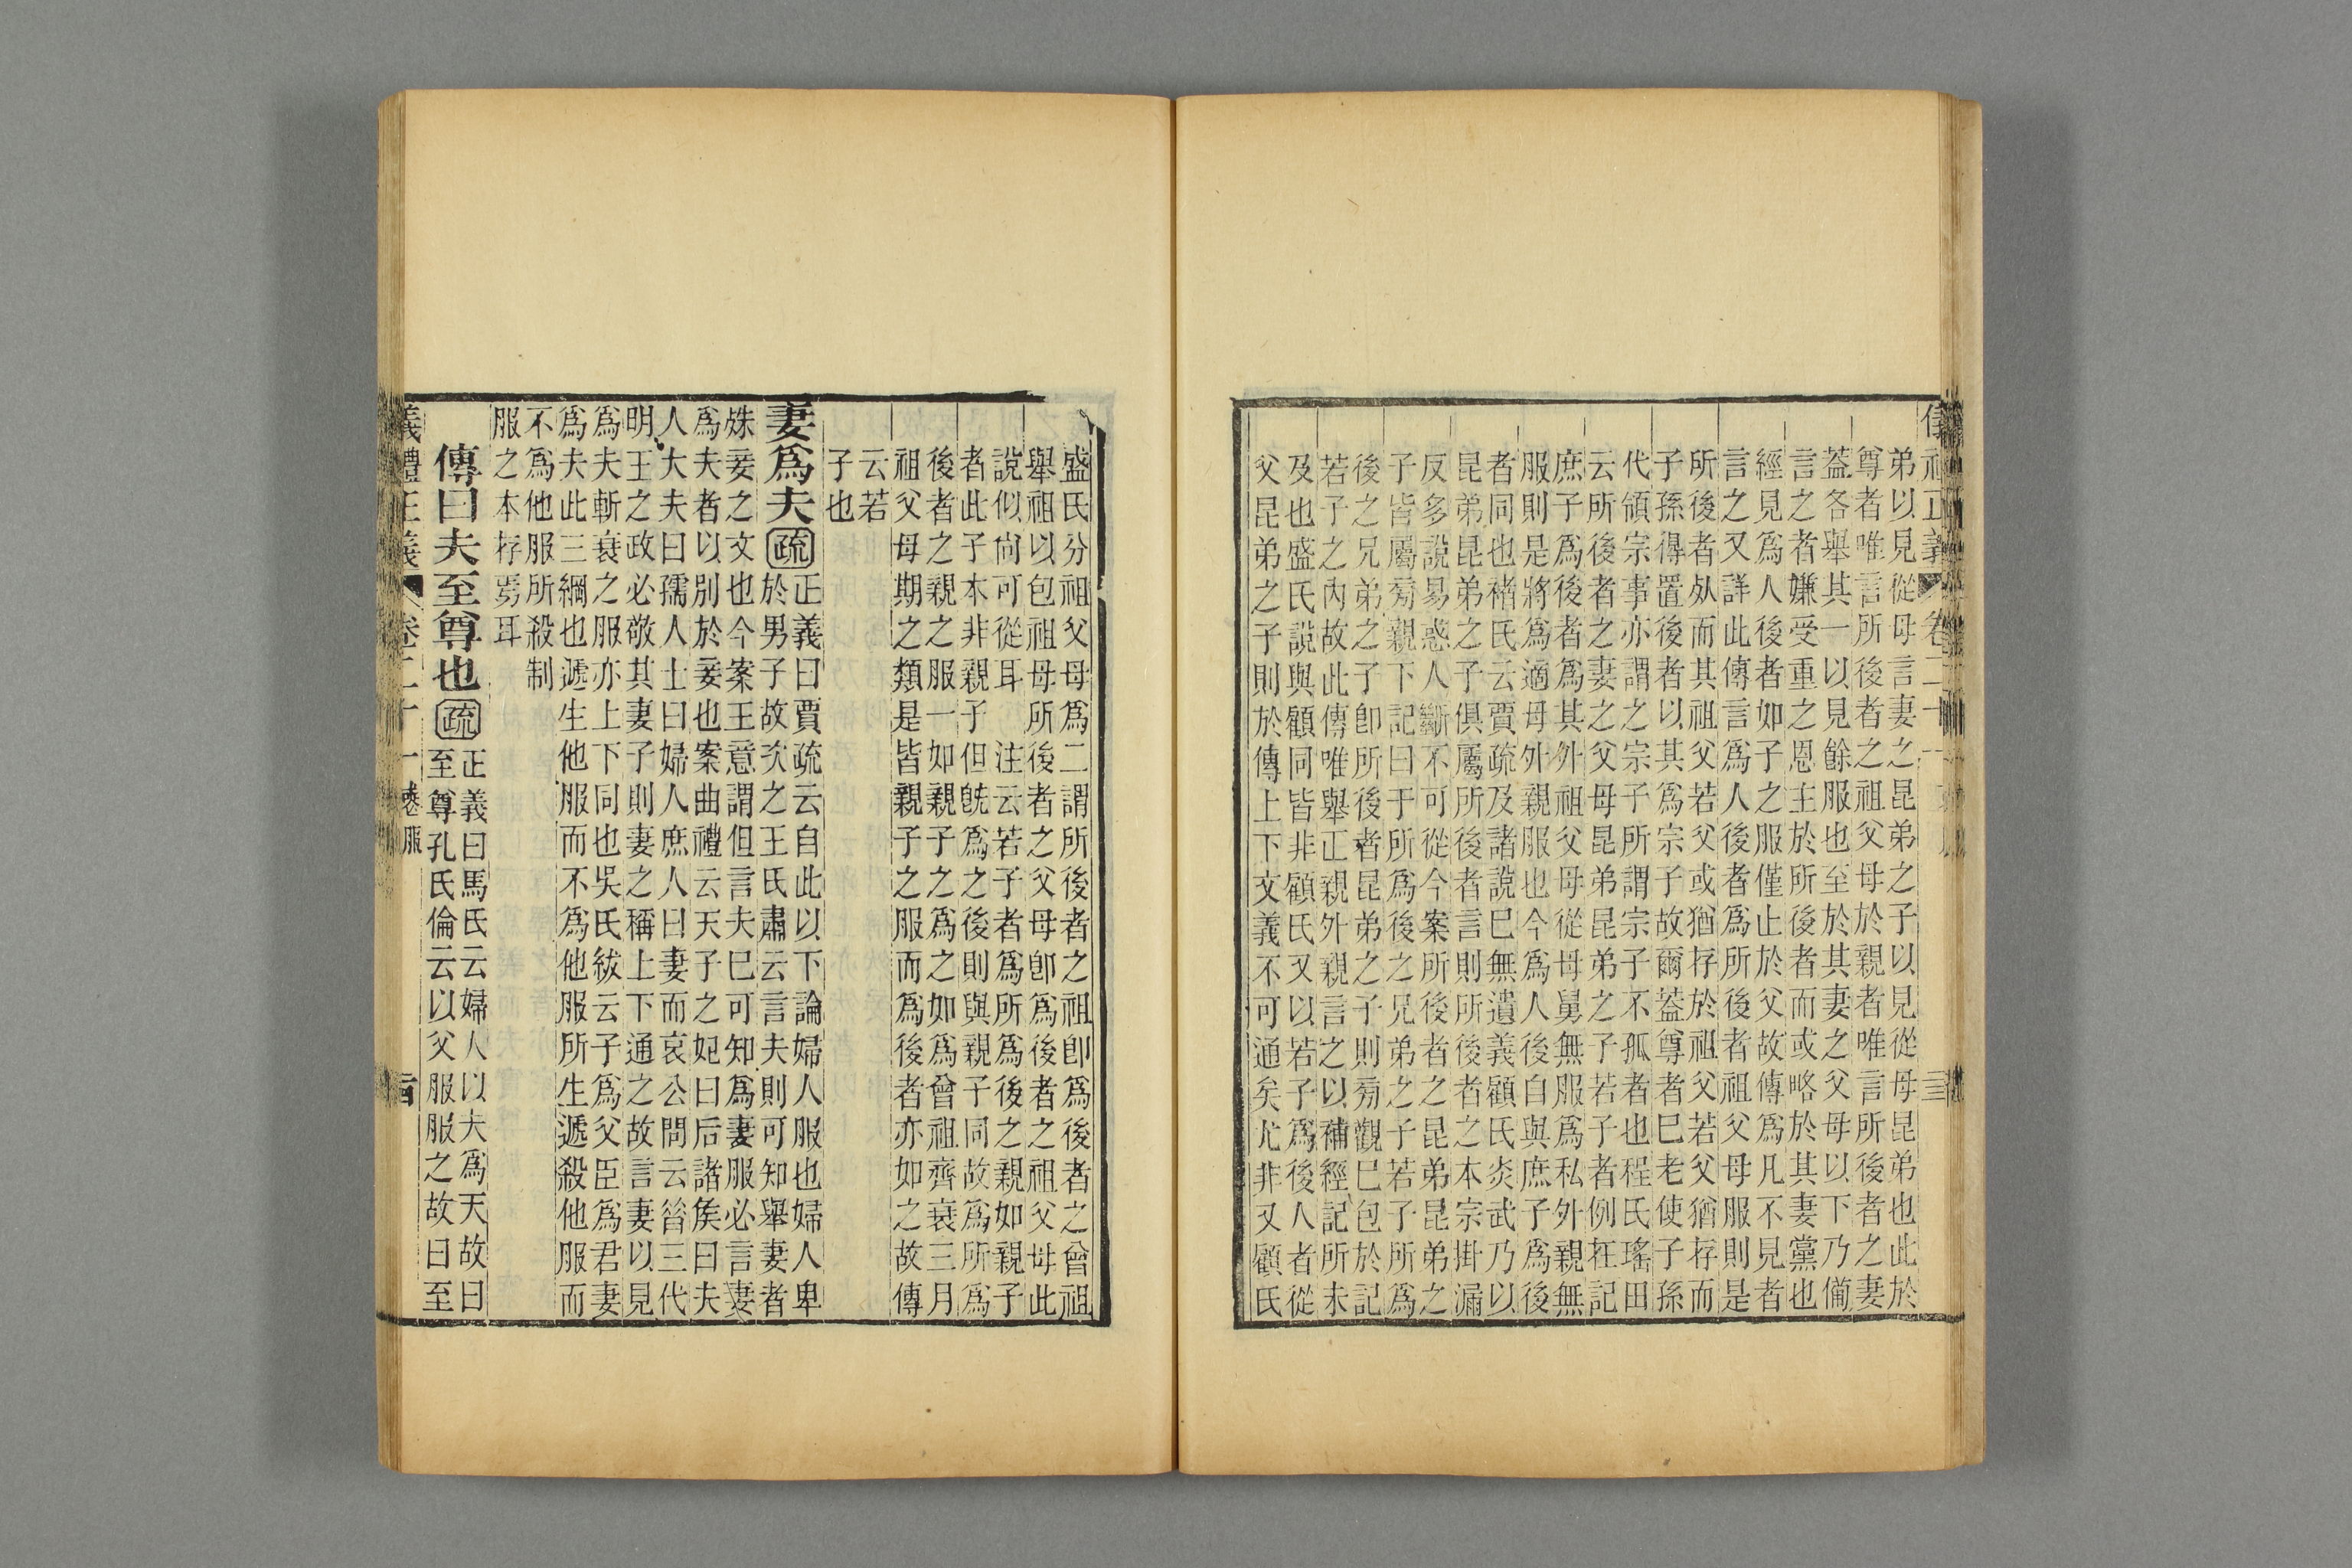 弟以見從母言妻之昆弟之子以見從母昆弟也此於
尊者唯言所後者之祖父母於親者唯言所後者之妻
葢各舉其一以見餘服也至於其妻之父母以下乃僃
言之者嫌受重之恩主於所後者而或略於其妻黨也
經見爲人後者如子之服僅止於父故傳爲凡不見者
言之又詳此傳言爲人後者爲所後者祖父母服則是
所後者𣦸而其祖父若父或猶存於祖父若父猶存而
子孫得置後者以其爲宗子故爾葢尊者已老使子孫
代領宗事亦謂之宗子所謂宗子不孤者也程氏瑤田
云所後者之妻之父母昆弟昆弟之子若子者例在記
庶子爲後者爲其外祖父母從母舅無服爲私外親無
服則是將爲適母外親服也今爲人後自與庶子爲後
者同也褚氏云賈疏及諸說已無遺義顧氏炎武乃以
昆弟昆弟之子俱屬所後者言則所後者之本宗掛漏
反多說易惑人斷不可從今案所後者之昆弟昆弟之
子皆屬旁親下記曰于所爲後之兄弟之子若子所爲
後之兄弟之子卽所後者昆弟之子則旁觀已包於記
若子之內故此傳唯舉正親外親言之以補經記所未
及也盛氏說與顧同皆非顧氏又以若子爲後人者從
父昆弟之子則於傳上下文義不可通矣尤非又顧氏
盛氏分祖父母爲二謂所後者之祖卽爲後者之曾祖
舉祖以包祖母所後者之父母卽爲後者之祖父母此
說似尙可從耳 注云若子者爲所爲後之親如親子
者此子本非親子但旣爲之後則與親子同故爲所爲
後者之親之服一如親子之爲之如爲曾祖齊衰三月
祖父母期之類是皆親子之服而爲後者亦如之故傳
云若
子也
妻爲夫疏正義曰賈疏云自此以下論婦人服也婦人卑
於男子故次之王氏肅云言夫則可知舉妻者
姝妾之文也今案王意謂但言夫已可知爲妻服必言妻
爲夫者以別於妾也案曲禮云天子之妃曰后諸矦曰夫
人大夫曰孺人士曰婦人庶人曰妻而哀公問云昝三代
明王之政必敬其妻子則妻之稱上下通之故言妻以見
爲夫斬衰之服亦上下同也吳氏紱云子爲父臣爲君妻
爲夫此三綱也遞生他服而不爲他服所生遞殺他服而
不爲他服所殺制
服之本存焉耳
傳曰夫至尊也疏正義曰馬氏云婦人以夫爲天故曰
至尊孔氏倫云以父服服之故曰至
義禮正義 卷二十一 喪服